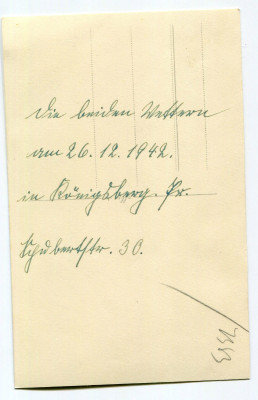 Die beiden Vettern
am 26.12.1942.
in Königsberg. Pr.
Schubertstr. 30.